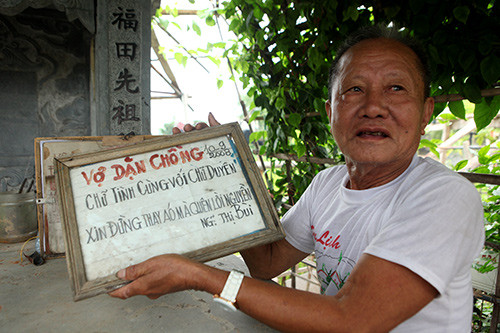 福田先祖
VỢ DẶN CHỒNG
10-8
2008
CHỮ TÌNH CÙNG VỚI CHỮ DUYÊN
XIN ĐỪNG THAY ÁO MÀ QUÊN LỜI NGUYỀN
NG: THỊ BÙI
Du Lịch